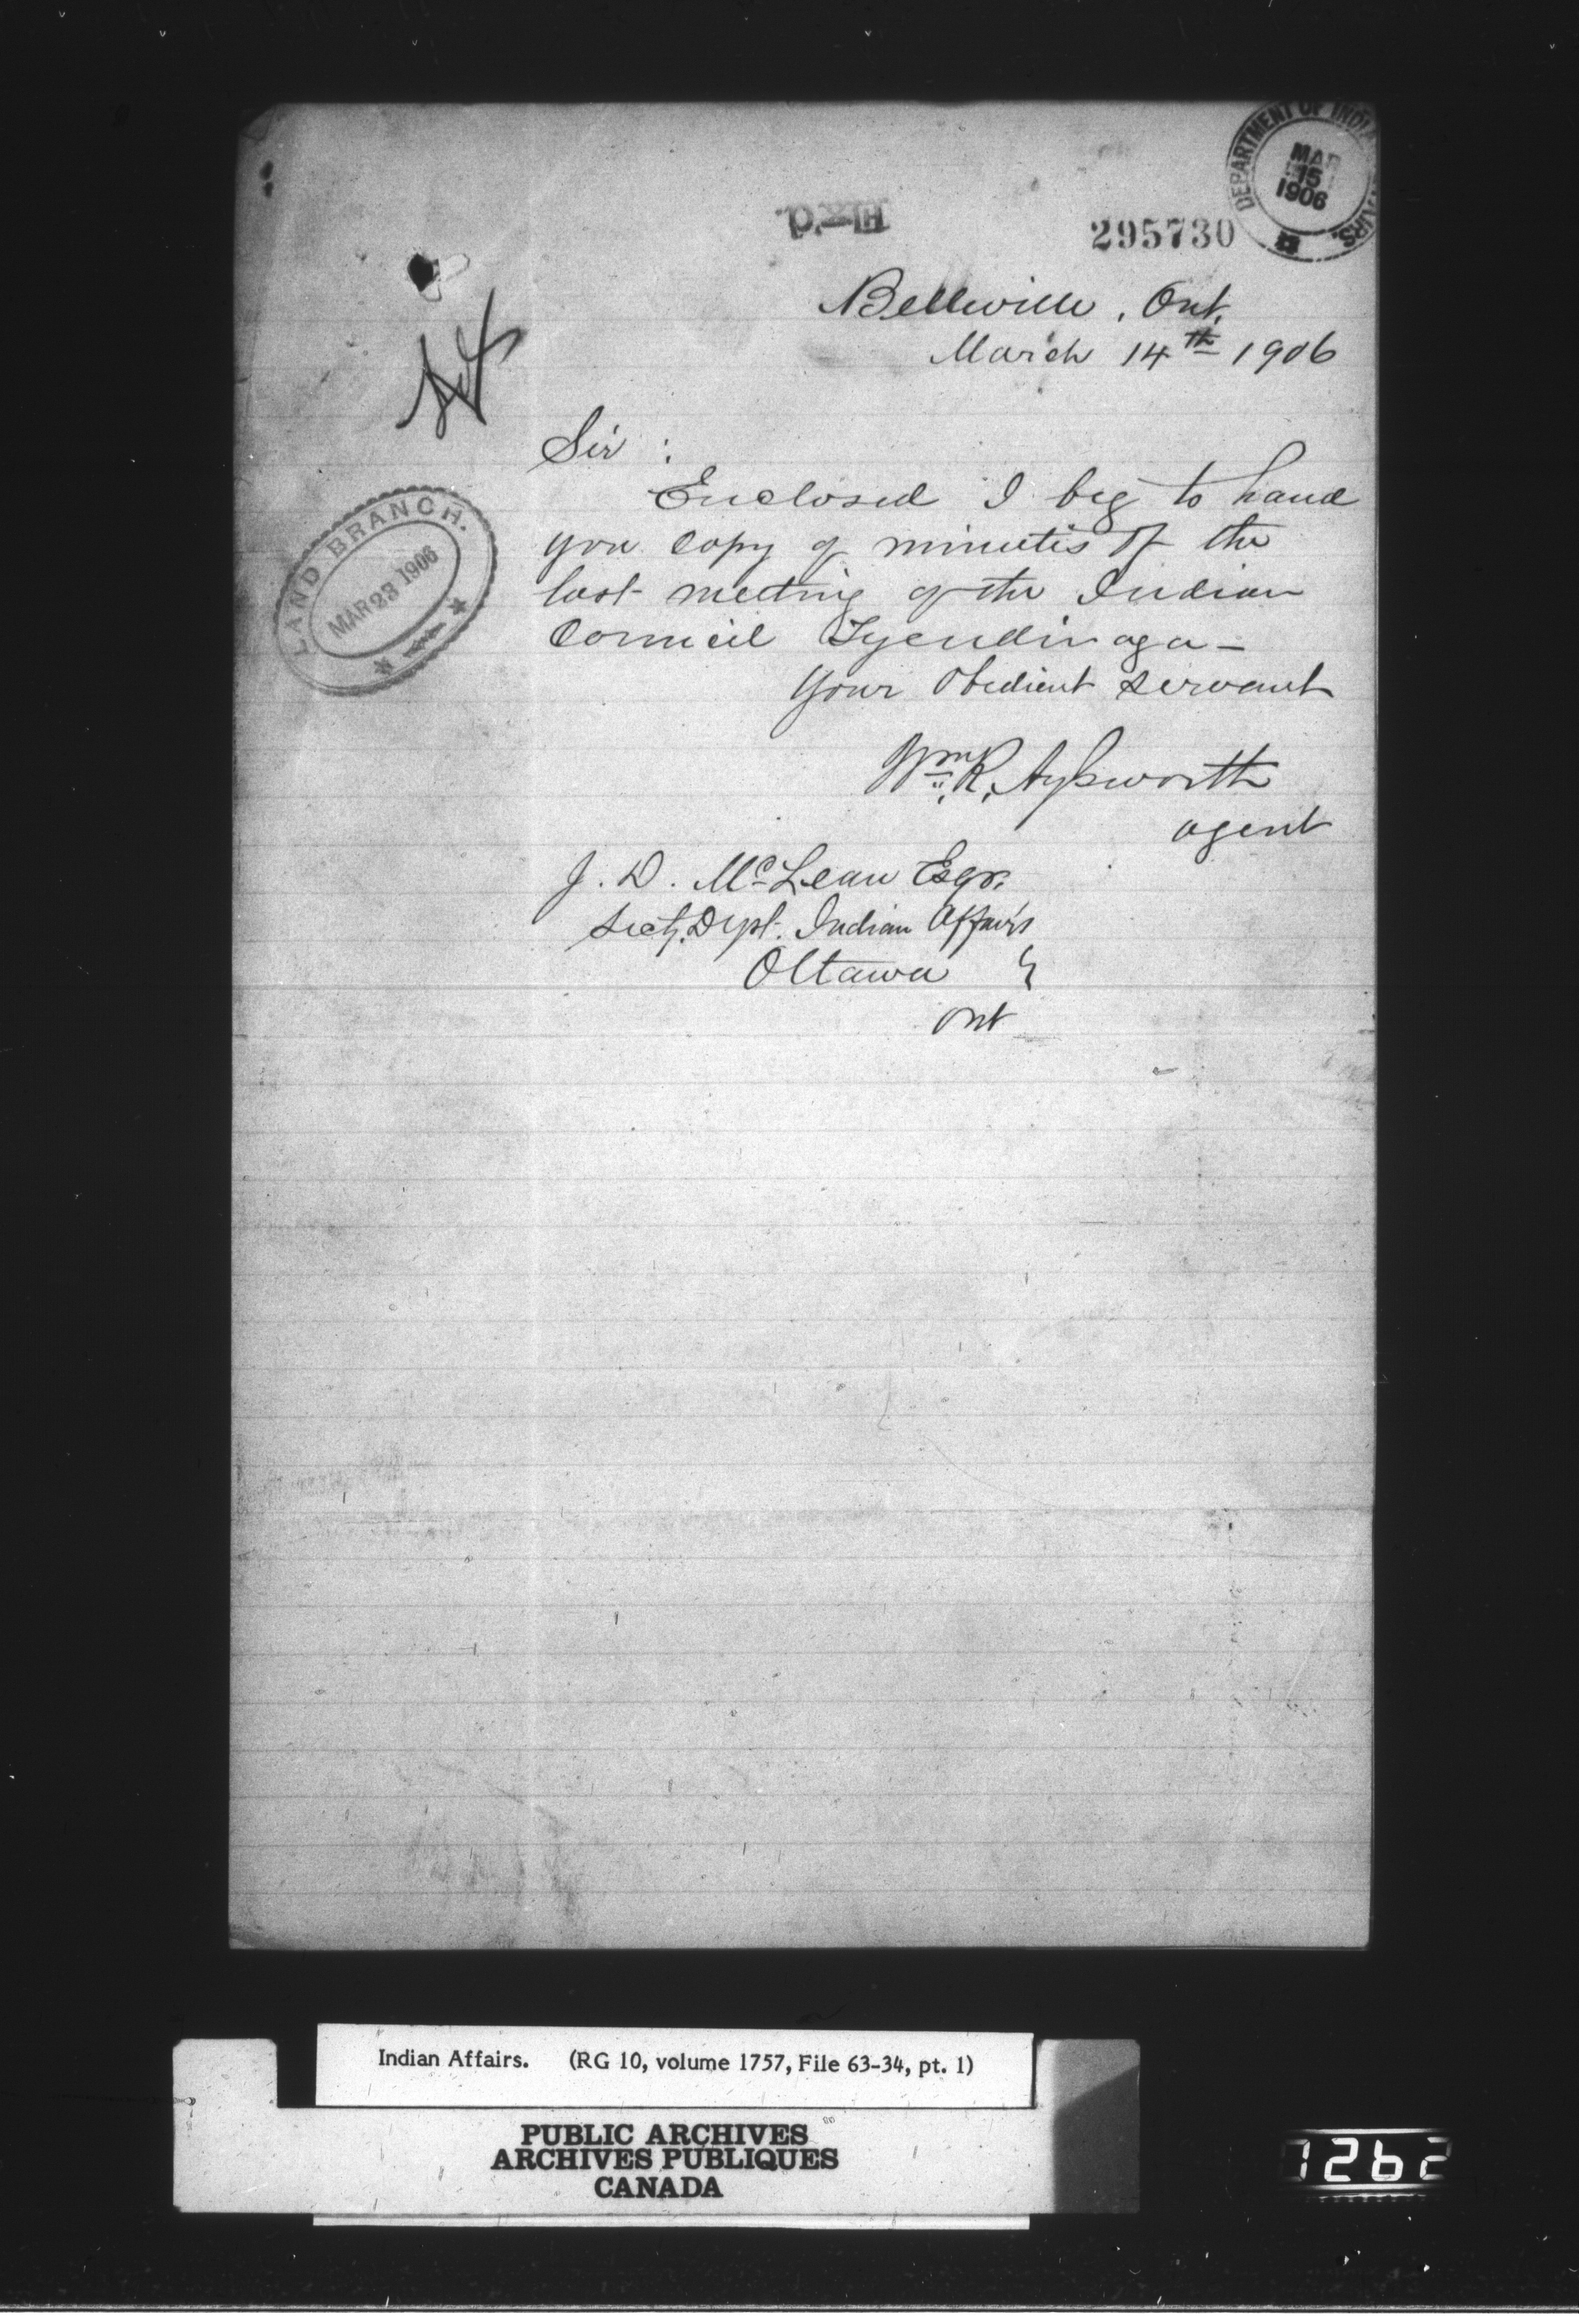 DEPARTMENT OF INDIAN AFFAIRS.
MAR 15 1906
295730
Belleville, Ont.
March 14th 1906
Sir :
Enclosed I beg to hand
you copy of minutes of the
last meeting of the Indian
Council Tyendinaga —
Your Obedient Servant
Wm. R. Aylsworth
agent
LAND BRANCH.
MAR 23 1906
J. D. McLean Esqr.
Secty. Dept. Indian Affairs
Ottawa
Ont
Indian Affairs. (RG 10, volume 1757, File 63-34, pt. 1)
PUBLIC ARCHIVES
ARCHIVES PUBLIQUES
CANADA
1262